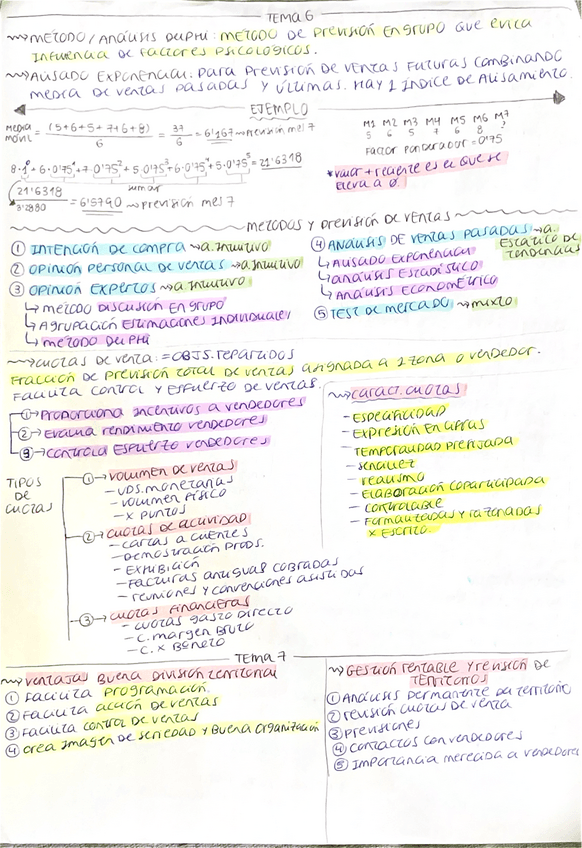 TEMA 6
MÉTODO/ANÁLISIS DELPHI: MÉTODO DE PREVISIÓN EN GRUPO QUE EVITA
INFLUENCIA DE FACTORES PSICOLÓGICOS.
ALISADO EXPONENCIAL: PARA PREVISIÓN DE VENTAS FUTURAS COMBINANDO
MEDIA DE VENTAS PASADAS Y ÚLTIMAS. HAY 1 ÍNDICE DE ALISAMIENTO.
EJEMPLO
MEDIA MÓVIL = (5+6+5+7+6+8) / 6 = 37 / 6 = 6'167 → Previsión mes 7
M1 M2 M3 M4 M5 M6 M7
5 6 5 7 6 8 ?
Factor Ponderador = 0'75
8·1⁰ + 6·0'75¹ + 7·0'75² + 5·0'75³ + 6·0'75⁴ + 5·0'75⁵ = 21'6318
sumar
*valor + reciente es el que se
eleva a 0.
21'6318 / 3'2880 = 6'5790 → previsión mes 7
METODOS Y PREVISIÓN DE VENTAS
① INTENCIÓN DE COMPRA → a. Intuitivo
② OPINIÓN PERSONAL DE VENTAS → a. Intuitivo
③ OPINIÓN EXPERTOS → a. Intuitivo
↳ MÉTODO DISCUSIÓN EN GRUPO
↳ AGRUPACIÓN ESTIMACIONES INDIVIDUALES
↳ MÉTODO DELPHI
④ ANÁLISIS DE VENTAS PASADAS → a. ESTÁTICO DE TENDENCIAS
↳ ALISADO EXPONENCIAL
↳ ANÁLISIS ESTADÍSTICO
↳ ANÁLISIS ECONOMÉTRICO
⑤ TEST DE MERCADO → MIXTO
CUOTAS DE VENTA: = OBJS. REPARTIDOS
FRACCIÓN DE PREVISIÓN TOTAL DE VENTAS ASIGNADA A 1 ZONA O VENDEDOR.
FACILITA CONTROL Y ESFUERZO DE VENTAS.
① → PROPORCIONA INCENTIVOS A VENDEDORES
② → EVALÚA RENDIMIENTO VENDEDORES
③ → CONTROLA ESFUERZO VENDEDORES
CARACT. CUOTAS
- ESPECIFICIDAD
- EXPRESIÓN EN CIFRAS
- TEMPORALIDAD PREFIJADA
- SENCILLEZ
- REALISMO
- ELABORACIÓN COPARTICIPADA
- CONTROLABLE
- FORMALIZADAS Y RAZONADAS
X ESCRITO.
TIPOS
DE
CUOTAS
① → VOLUMEN DE VENTAS
- UDS. MONETARIAS
- VOLUMEN FÍSICO
- X PUNTOS
② → CUOTAS DE ACTIVIDAD
- CARTAS A CLIENTES
- DEMOSTRACIÓN PRODS.
- EXHIBICIÓN
- FACTURAS ANTIGUAS COBRADAS
- REUNIONES Y CONVENCIONES ASISTIDAS
③ → CUOTAS FINANCIERAS
- CUOTAS GASTO DIRECTO
- C. MARGEN BRUTO
- C. X BENEFO
TEMA 7
VENTAJAS BUENA DIVISIÓN TERRITORIAL
① FACILITA PROGRAMACIÓN.
② FACILITA ACCIÓN DE VENTAS
③ FACILITA CONTROL DE VENTAS
④ CREA IMAGEN DE SERIEDAD Y BUENA ORGANIZACIÓN
GESTIÓN RENTABLE Y REVISIÓN DE
TERRITORIOS
① ANÁLISIS PERMANENTE DEL TERRITORIO
② REVISIÓN CUOTAS DE VENTA
③ PREVISIONES
④ CONTACTOS CON VENDEDORES
⑤ IMPORTANCIA MERECIDA A VENDEDORES